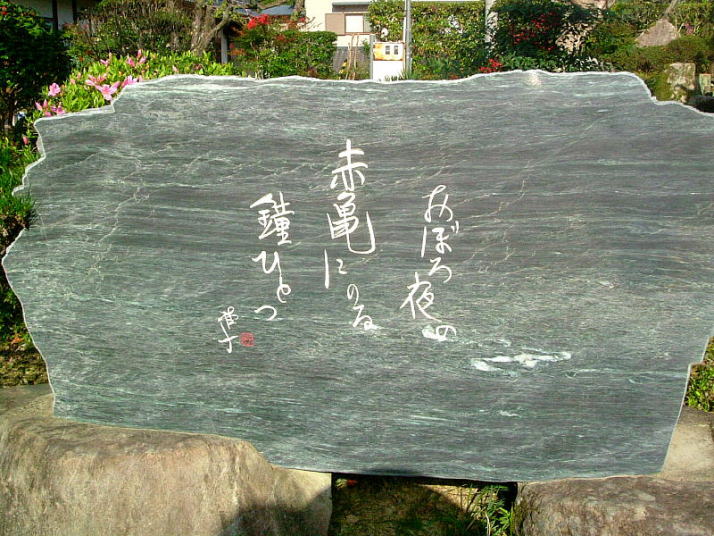 おぼろ夜の
赤亀にのる
鐘ひとつ